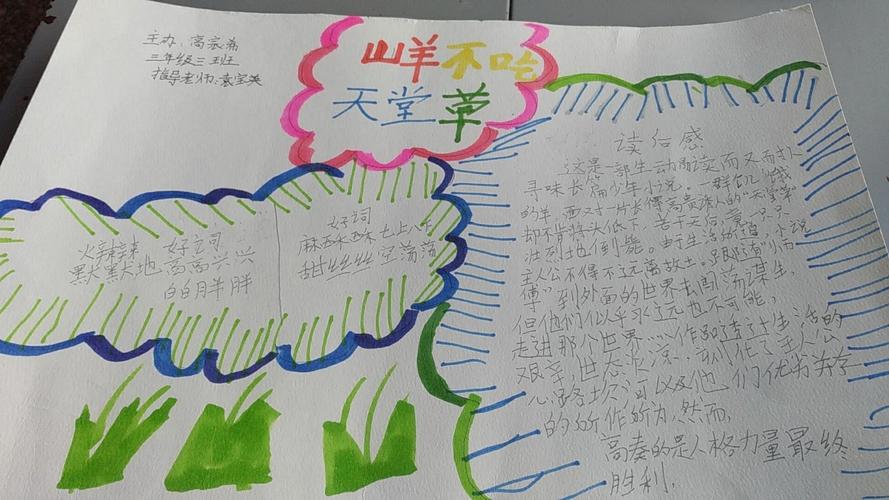 主办:高宸希
三年级三班
指导老师:袁宝英
山羊不吃
天堂草
火辣辣 好词
默默地 高高兴兴
白白胖胖
好词
麻酥酥 七上八下
甜丝丝 空荡荡
读后感
这是一部生动易读而又耐人
寻味长篇少年小说。一群饥饿
的羊,面对一片长得高贵
却不肯将头低下,若干天后,第一只只
壮烈地倒毙。由于生活所迫,小说
主人公不得不远离故土,跟随
傅”到外面的世界去闯荡谋生,
但他们似乎永远也不可能
走进那个世界……作品 生活的
艰辛世态 主人公
心路 可以及他们优劣
的所作所为,然而,
高奏的是人格力量最终
胜利.